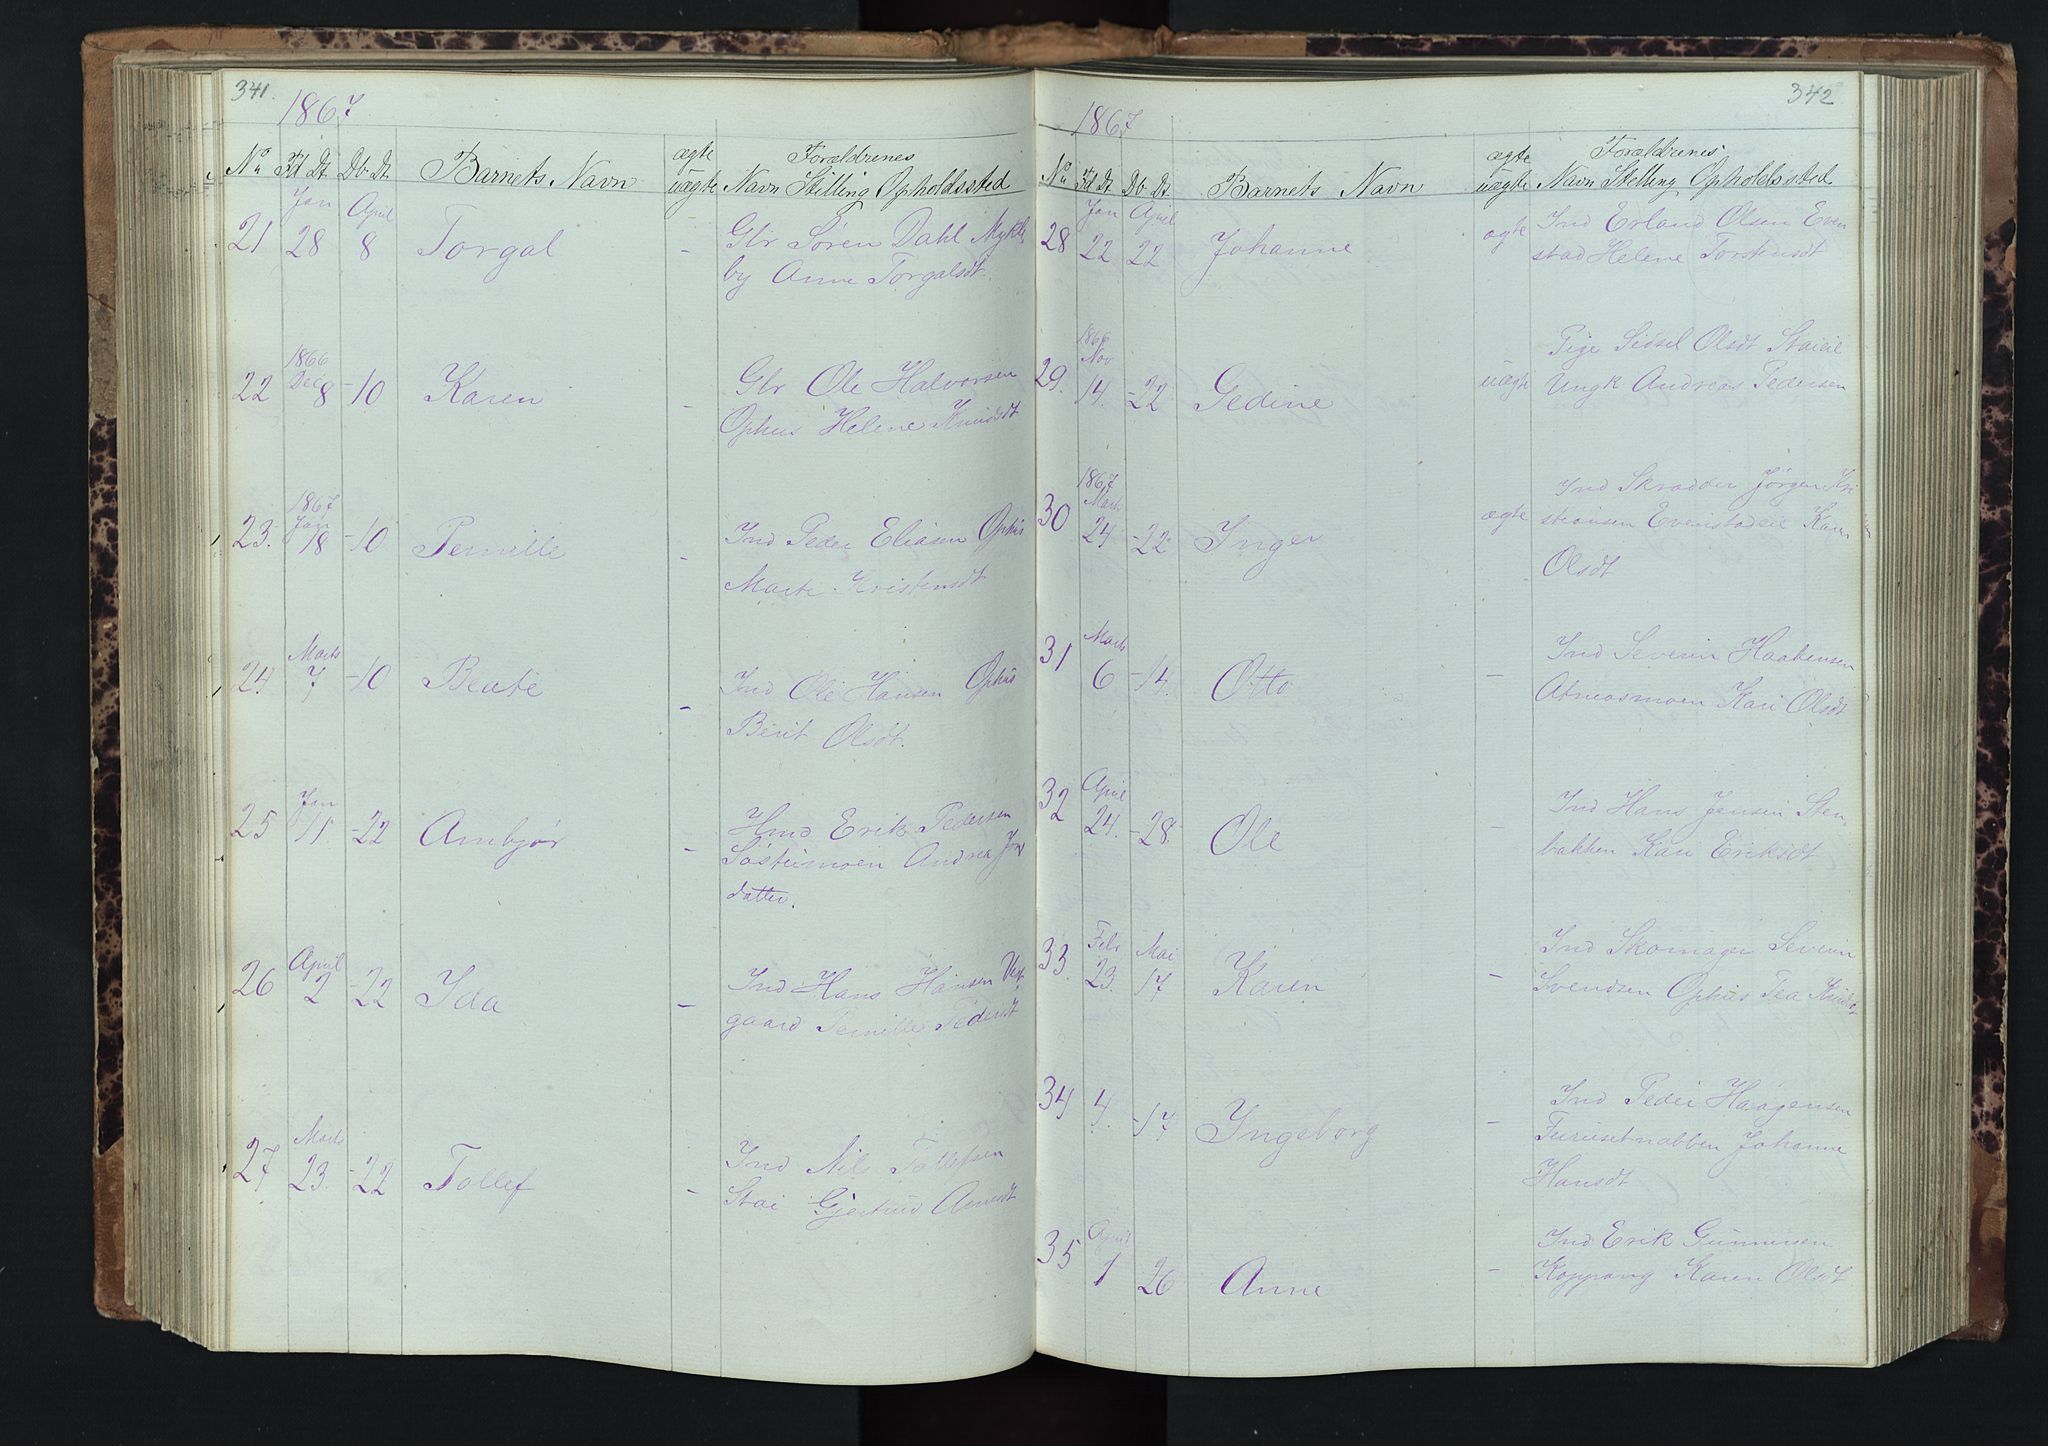 341.
1867
No Fd Dt. Db Dt. Barnets Navn ægte uægte Forældrenes Navn Stilling Opholdssted
Jan April
21 28 8 Torgal - Gbr Søren Dahl Mykle
by Anne Torgalsdt.
1866
Dec
22 8 -10 Karen - Gbr Ole Halvorsen
Ophus Helene Knudsdt
1867
Jan
23. 18 -10 Pernille - Ind Peder Eliasen Ophus
Marte Kristensdt
Marts
24 7 -10 Beate - Ind Ole Hansen Ophus
Berit Olsdt.
Jan
25 11. -22 Arnbjør - Hmd Erik Pedersen
Søstumoen Andrea Jons
datter.
April
26 2 -22 Ida - Ind Hans Hansen Vest
gaard Pernille Pedersdt
Marts
27. 23. -22 Tollef - Ind Nils Tollefsen
Stai Gjertrud Arnesdt
342
1867
No Fd Dt. Db Dt. Barnets Navn ægte uægte Forældrenes Navn Stilling Opholdssted
Jan April
28 22 22 Johanne ægte Ind Erland Olsen Even
stad Helene Torstensdt
1866
Nov
29. 14. -22 Gedine uægte Pige Sidsel Olsdt Staieie
Ungk. Andreas Pedersen
1867
Marts
30 24 -22 Inger ægte Ind Skrædder Jørgen Kri
stiansen Evenstadeie Karen
Olsdt
Marts
31 6 -14. Otto - Ind Severin Haakensen
Atneosmoen Kari Olsdt
April
32 24. -28. Ole - Ind Hans Jensen Sten
bakken Kari Eriksdt
Feb. Mai
33. 23. 17 Karen - Ind Skomager Severin
Svendsen Ophus Pea Knudsdt
34 4. -17 Ingeborg - Ind Peder Haagensen
Furusetnabben Johanne
Hansdt
April
35 1 26 Anne - Ind Erik Gunnersen
Koppang Karen Olsdt